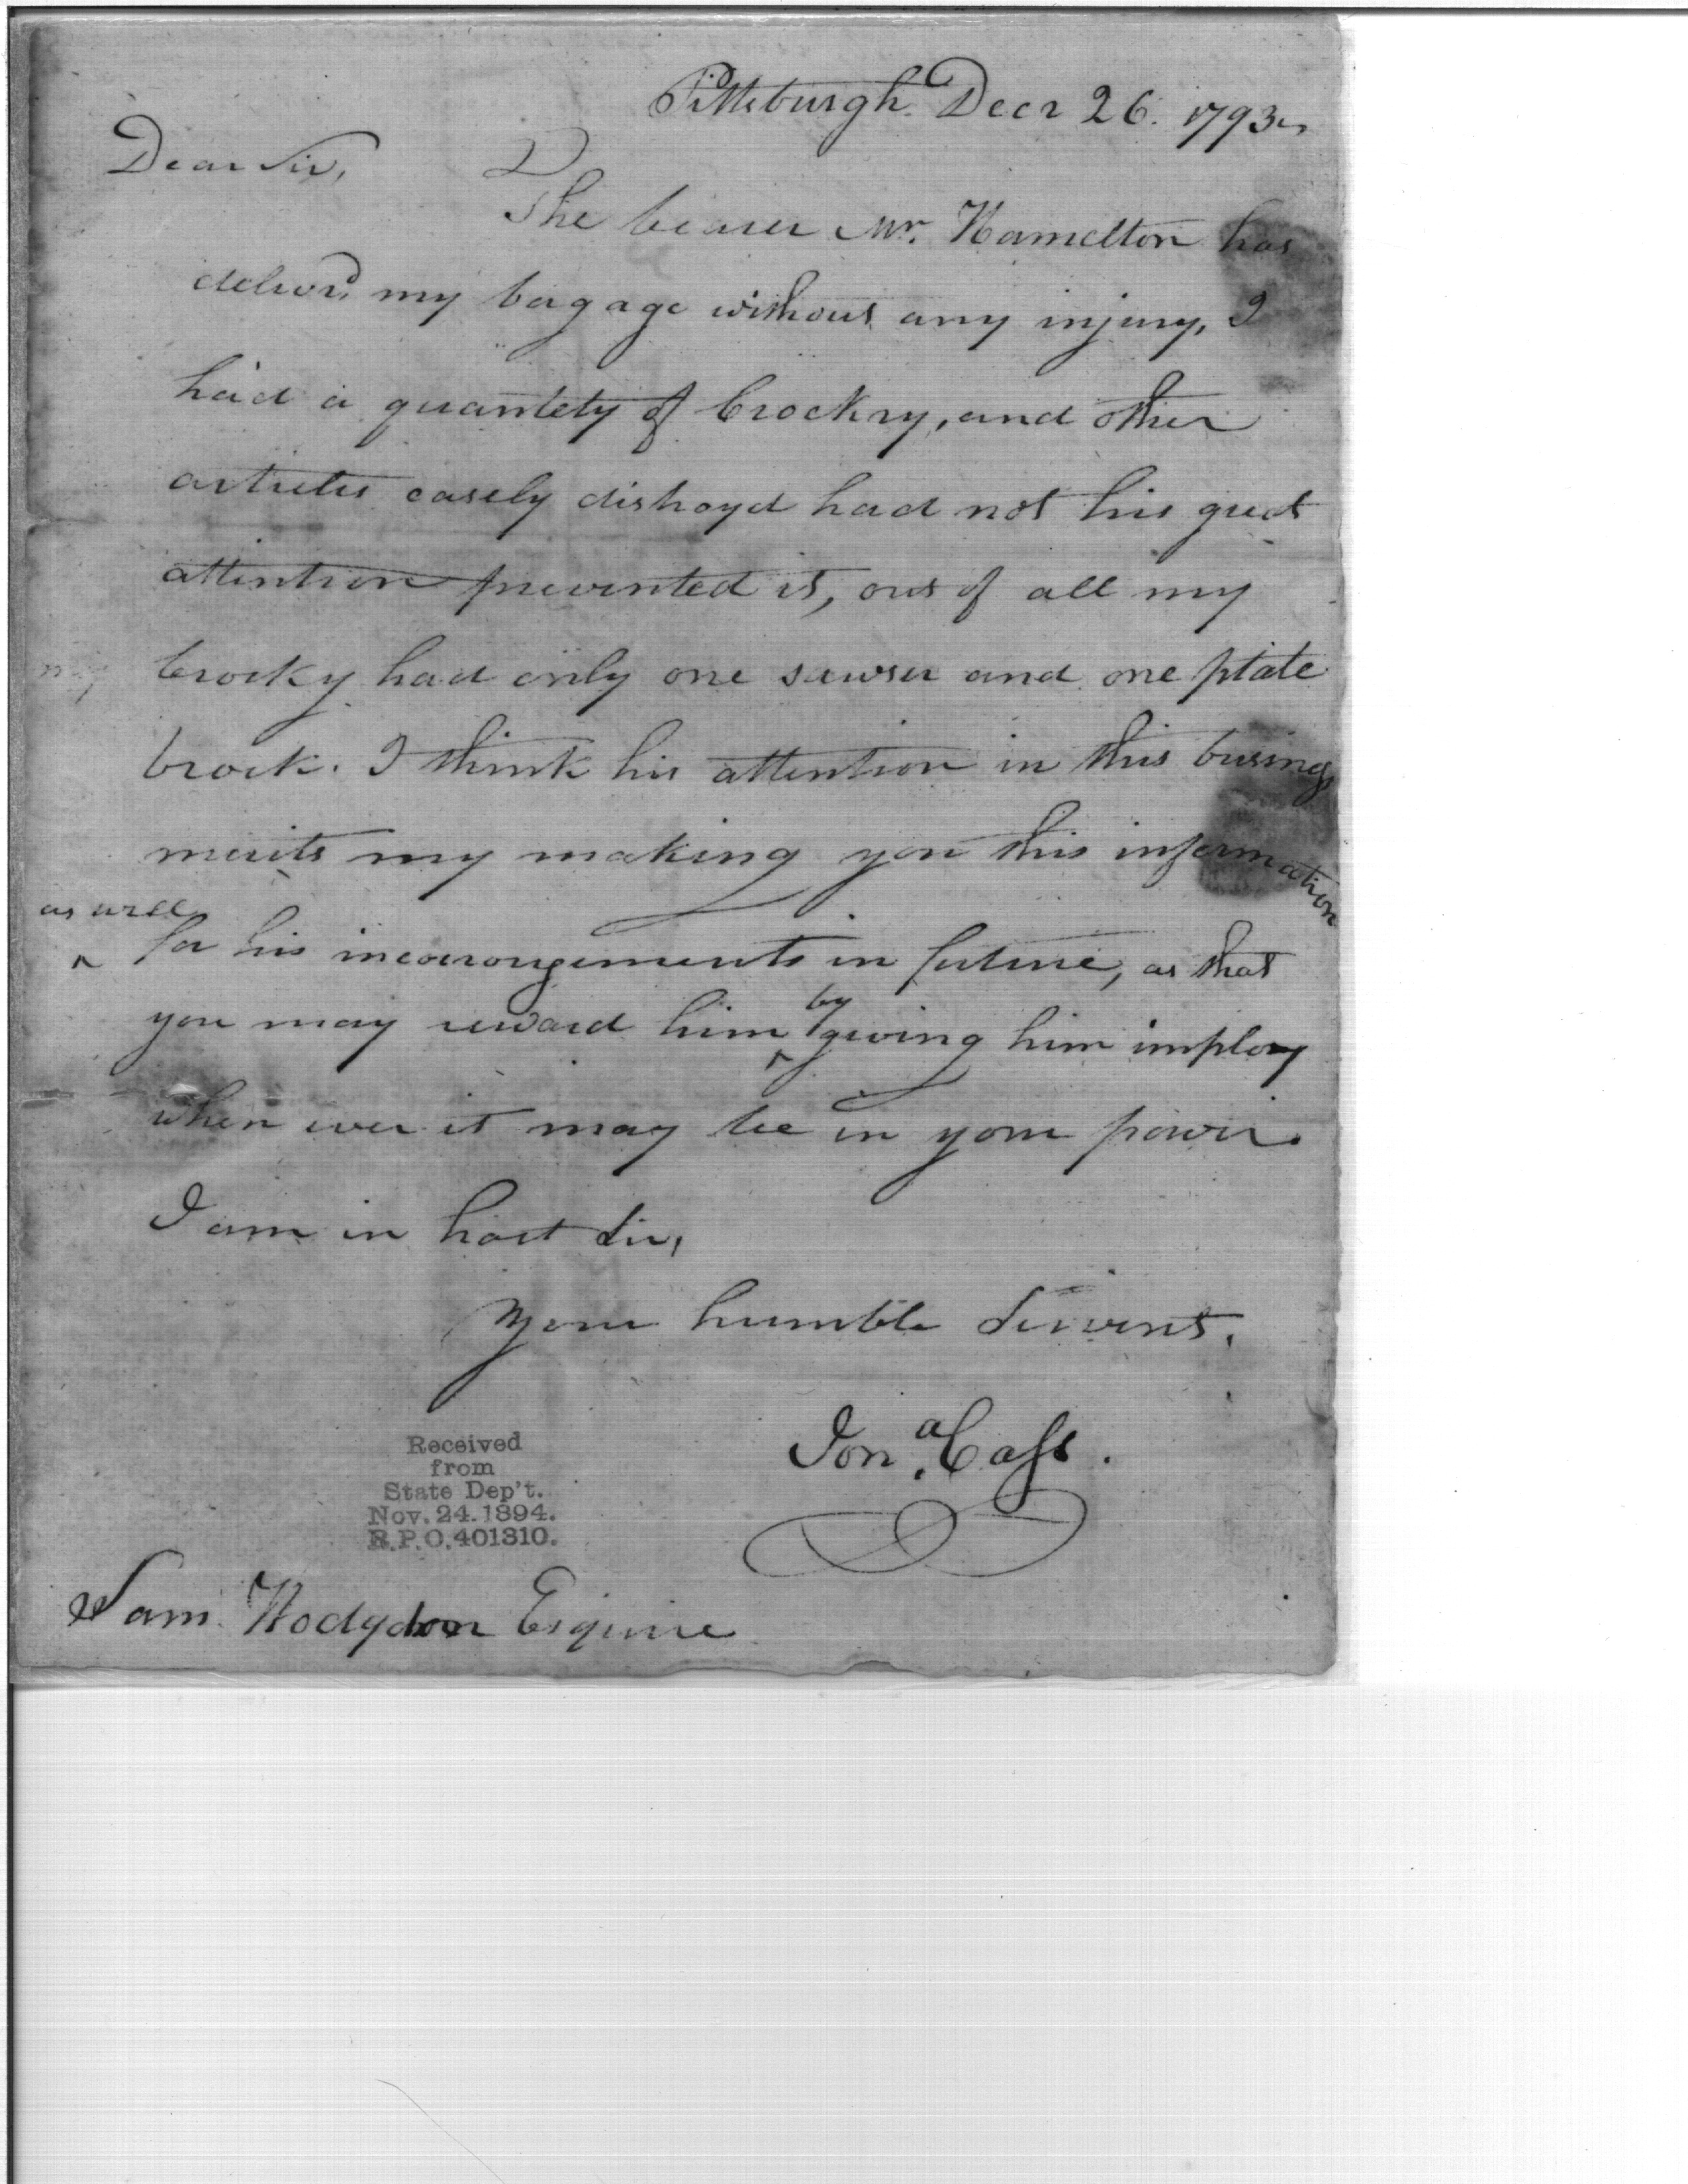 Pittsburgh Decr 26. 1793
Dear Sir,
The bearer Mr. Hamelton has
delivrd my bagage without any injury, I
had a quantety of Crockry, and other
articles easely distroyd had not his greet
attention prevented it, out of all my
Crocky had only one sawser and one plate
brock. I think his attention in this business
merits my making you this information
as well
for his incourongements in future, as that
by
you may reward him giving him imploy
when ever it may be in your power.
I am in hast Sir,
Your humble Servent,
Jona. Cass.
Received
from
State Dep't.
Nov. 24. 1894.
R.P.O. 401310.
Sam Hodgdon Esquire